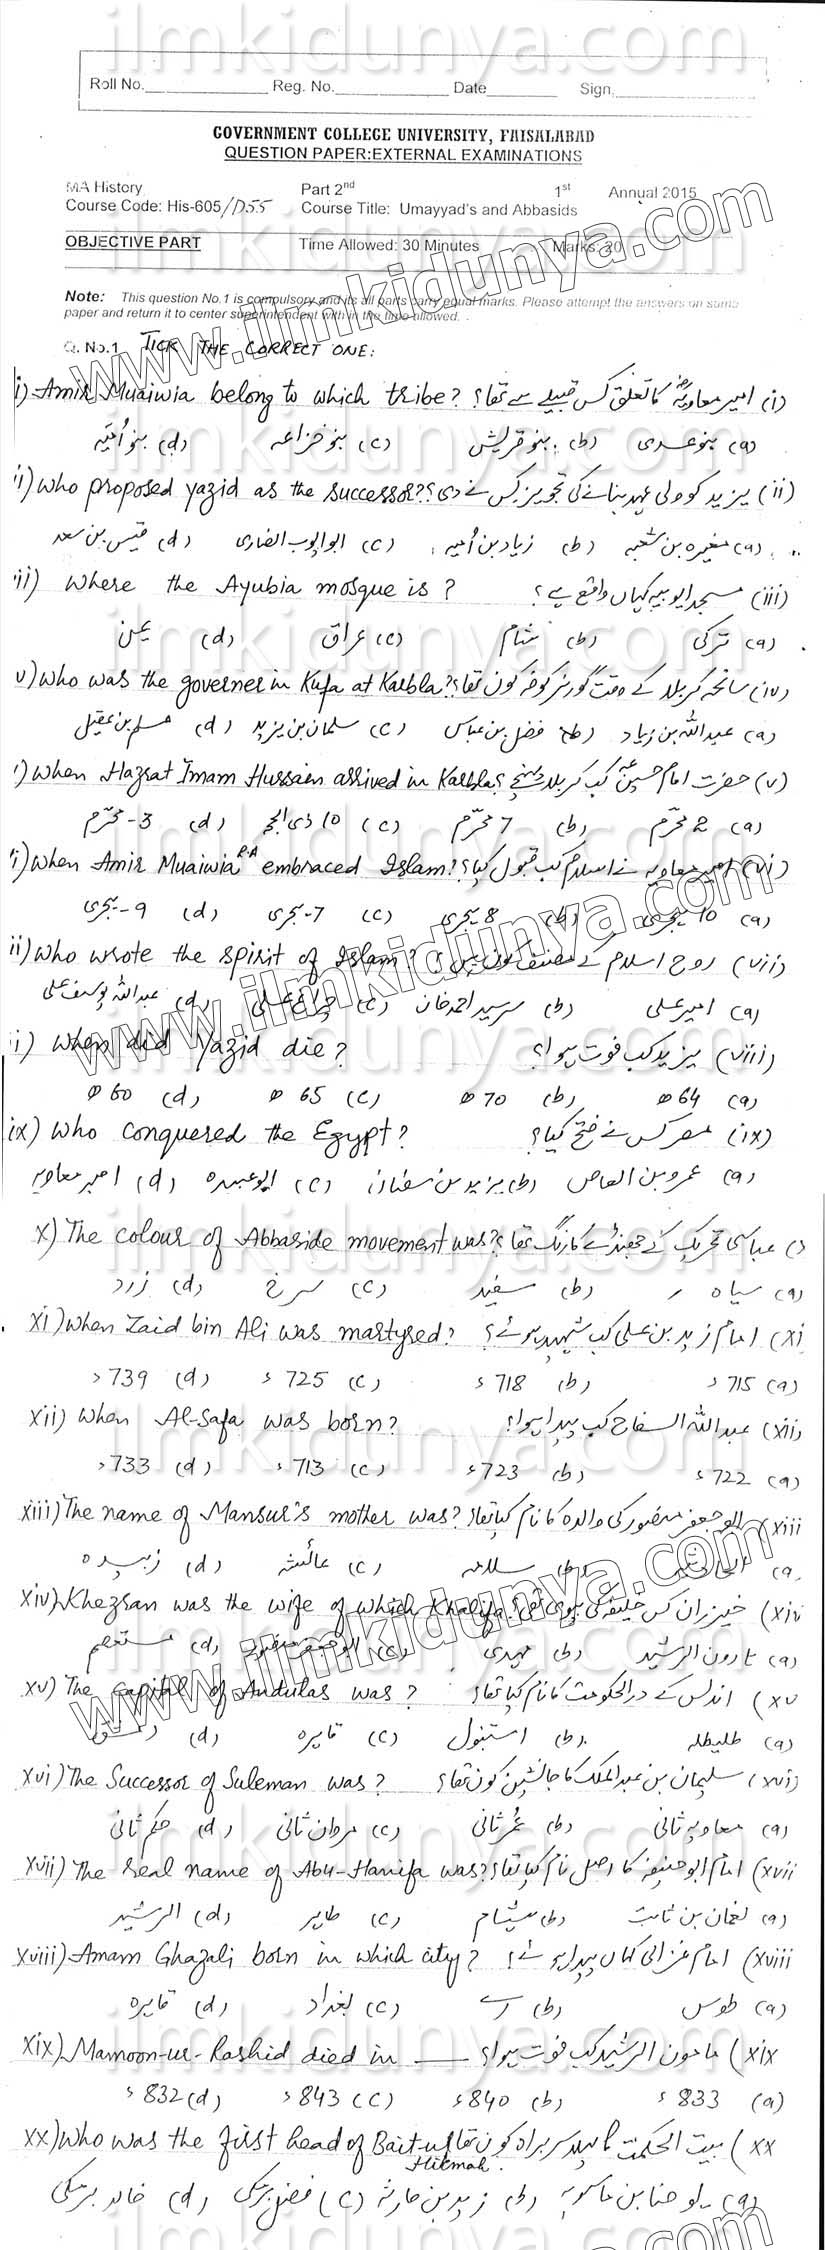 ilmkidunya.com
Roll No. Reg. No. Date Sign.
GOVERNMENT COLLEGE UNIVERSITY, FAISALABAD
QUESTION PAPER:EXTERNAL EXAMINATIONS
MA History Part 2nd 1st Annual 2015
Course Code: His-605/D55 Course Title: Umayyad's and Abbasids
OBJECTIVE PART Time Allowed: 30 Minutes Marks: 20
Note: This question No.1 is compulsory and its all parts carry equal marks. Please attempt the answers on same
paper and return it to center superintendent with in the time allowed.
Q. No.1 TICK THE CORRECT ONE:
i) Amir Muaiwia belong to which tribe? (i) امیر معاویہؓ کا تعلق کس قبیلے سے تھا؟
(a) بنو عدی (b) بنو قریش (c) بنو خزاعہ (d) بنو اُمیّہ
ii) Who proposed yazid as the successor? (ii) یزید کو ولی عہد بنانے کی تجویز کس نے دی؟
(a) مغیرہ بن شعبہ (b) زیاد بن اُمیہ (c) ابو ایوب انصاری (d) قیس بن سعد
ii) Where the Ayubia mosque is? (iii) مسجد ایوبیہ کہاں واقع ہے؟
(a) ترکی (b) شام (c) عراق (d) یمن
v) Who was the governer in Kufa at Karbla? (iv) سانحہ کربلا کے وقت گورنر کوفہ کون تھا؟
(a) عبداللہ بن زیاد (b) فضل بن عباس (c) سلمان بن یزید (d) مسلم بن عقیل
i) When Hazrat Imam Hussain arrived in Karbla? (v) حضرت امام حسینؑ کب کربلا پہنچے؟
(a) 2 محرّم (b) 7 محرّم (c) 10 ذی الحج (d) 3-محرّم
i) When Amir Muaiwia R.A embraced Islam? (vi) امیر معاویہ نے اسلام کب قبول کیا؟
(a) 10 ہجری (b) 8 ہجری (c) 7-ہجری (d) 9-ہجری
ii) Who wrote the spirit of Islam? (vii) روح اسلام کے مصنف کون ہیں؟
(a) امیر علی (b) سرسید احمد خان (c) چراغ علی (d) عبداللہ یوسف علی
i) When did Yazid die? (viii) یزید کب فوت ہوا؟
(a) 64 ھ (b) 70 ھ (c) 65 ھ (d) 60 ھ
ix) Who conquered the Egypt? (ix) مصر کس نے فتح کیا؟
(a) عمرو بن العاص (b) یزید بن سفیان (c) ابو عبیدہ (d) امیر معاویہ
x) The colour of Abbaside movement was? عباسی تحریک کے جھنڈے کا رنگ تھا؟
(a) سیاہ (b) سفید (c) سرخ (d) زرد
xi) When Zaid bin Ali was martyred? (xi) امام زید بن علی کب شہید ہوئے؟
(a) 715ء (b) 718ء (c) 725ء (d) 739ء
xii) When Al-Safa was born? (xii) عبداللہ السفاح کب پیدا ہوا؟
(a) 722ء (b) 723ء (c) 713ء (d) 733ء
xiii) The name of Mansur's mother was? (xiii) ابو جعفر منصور کی والدہ کا نام کیا تھا؟
(a) (b) سلامہ (c) عائشہ (d) زبیدہ
xiv) Khezran was the wife of which Khalifa? (xiv) خیزران کس خلیفہ کی بیوی تھی؟
(a) ہارون الرشید (b) مہدی (c) ابو جعفر منصور (d) مستعصم
xv) The capital of Andulas was? (xv) اندلس کے دارالحکومت کا نام کیا تھا؟
(a) طلیطلہ (b) استنبول (c) قاہرہ (d) دمشق
xvi) The Successor of Suleman was? (xvi) سلیمان بن عبدالملک کا جانشین کون تھا؟
(a) معاویہ ثانی (b) عُمر ثانی (c) مروان ثانی (d) حکم ثانی
xvii) The real name of Abu-Hanifa was? (xvii) امام ابو حنیفہ کا اصل نام کیا تھا؟
(a) نعمان بن ثابت (b) ہشام (c) طاہر (d) الرشید
xviii) Amam Ghazali born in which city? (xviii) امام غزالی کہاں پیدا ہوئے؟
(a) طوس (b) رے (c) بغداد (d) قاہرہ
xix) Mamoon-ur-Rashid died in ___ (xix) مامون الرشید کب فوت ہوا؟
(a) 833ء (b) 840ء (c) 843ء (d) 832ء
xx) Who was the first head of Bait-ul Hikmah. (xx) بیت الحکمت کا پہلا سربراہ کون تھا
(a) یوحنا بن ماسویہ (b) زید بن حارثہ (c) فضل برمکی (d) خالد برمکی
www.ilmkidunya.com